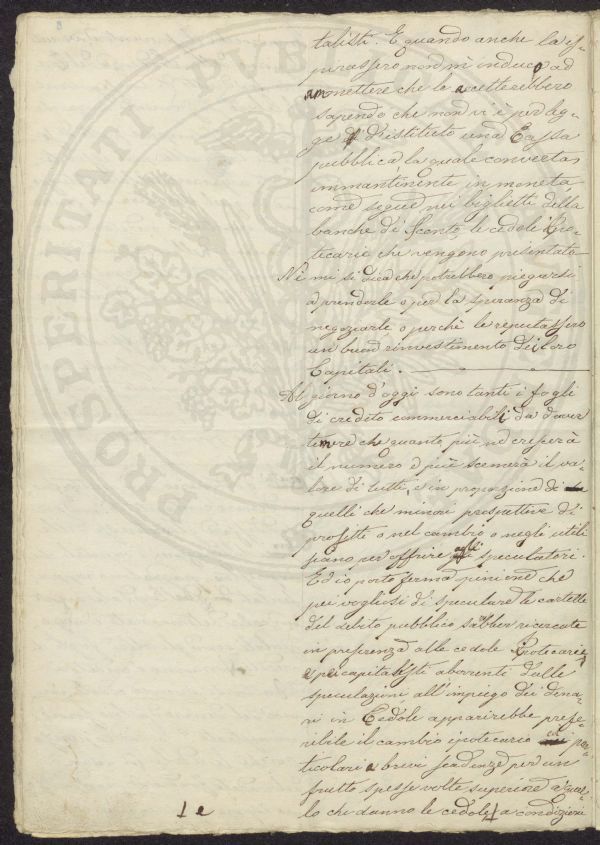 talisti. E quando anche la is-
pirassero non m'induco ad
ammettere che le accetterebbero
sapendo che non vi è per leg-
ge istituito una Cassa
pubblica la quale converta
immantinente in moneta
come segue nei biglietti della
banche di Sconto, le cedole ipo-
tecarie che vengono presentate
Nè mi si dica che potrebbero piegarsi
a prenderle o per la speranza di
negoziarle o perchè le reputassero
un buon rinvestimento dei loro
Capitali.
Al giorno d'oggi sono tanti i fogli
di credito commerciabili da dover
temere che quanto più ne crescerà
il numero e più scemerà il va-
lore di tutti, e in proporzione di
quelli che minori prospettive di
profitti o nel cambio o negli utili
siano per offrire agli speculatori.
Ed io porto ferma opinione che
pei vogliosi di speculare le cartelle
del debito pubblico sarebber ricercate
in preferenza alle cedole ipotecarie,
e pei capitalisti aborrenti dalle
speculazioni all'impiego dei dena-
ri in Cedole apparirebbe prefe-
ribile il cambio ipotecario coi par-
ticolari a brevi scadenze per un
frutto spesse volte superiore a quel-
lo che danno le cedole, a condizioni
e
PROSPERITATI PVB